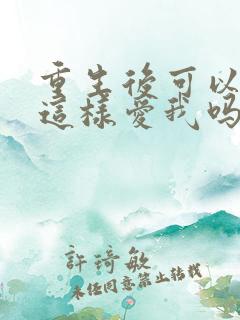 重生後可以
這樣愛我嗎
許琦敏
未經同意禁止轉載